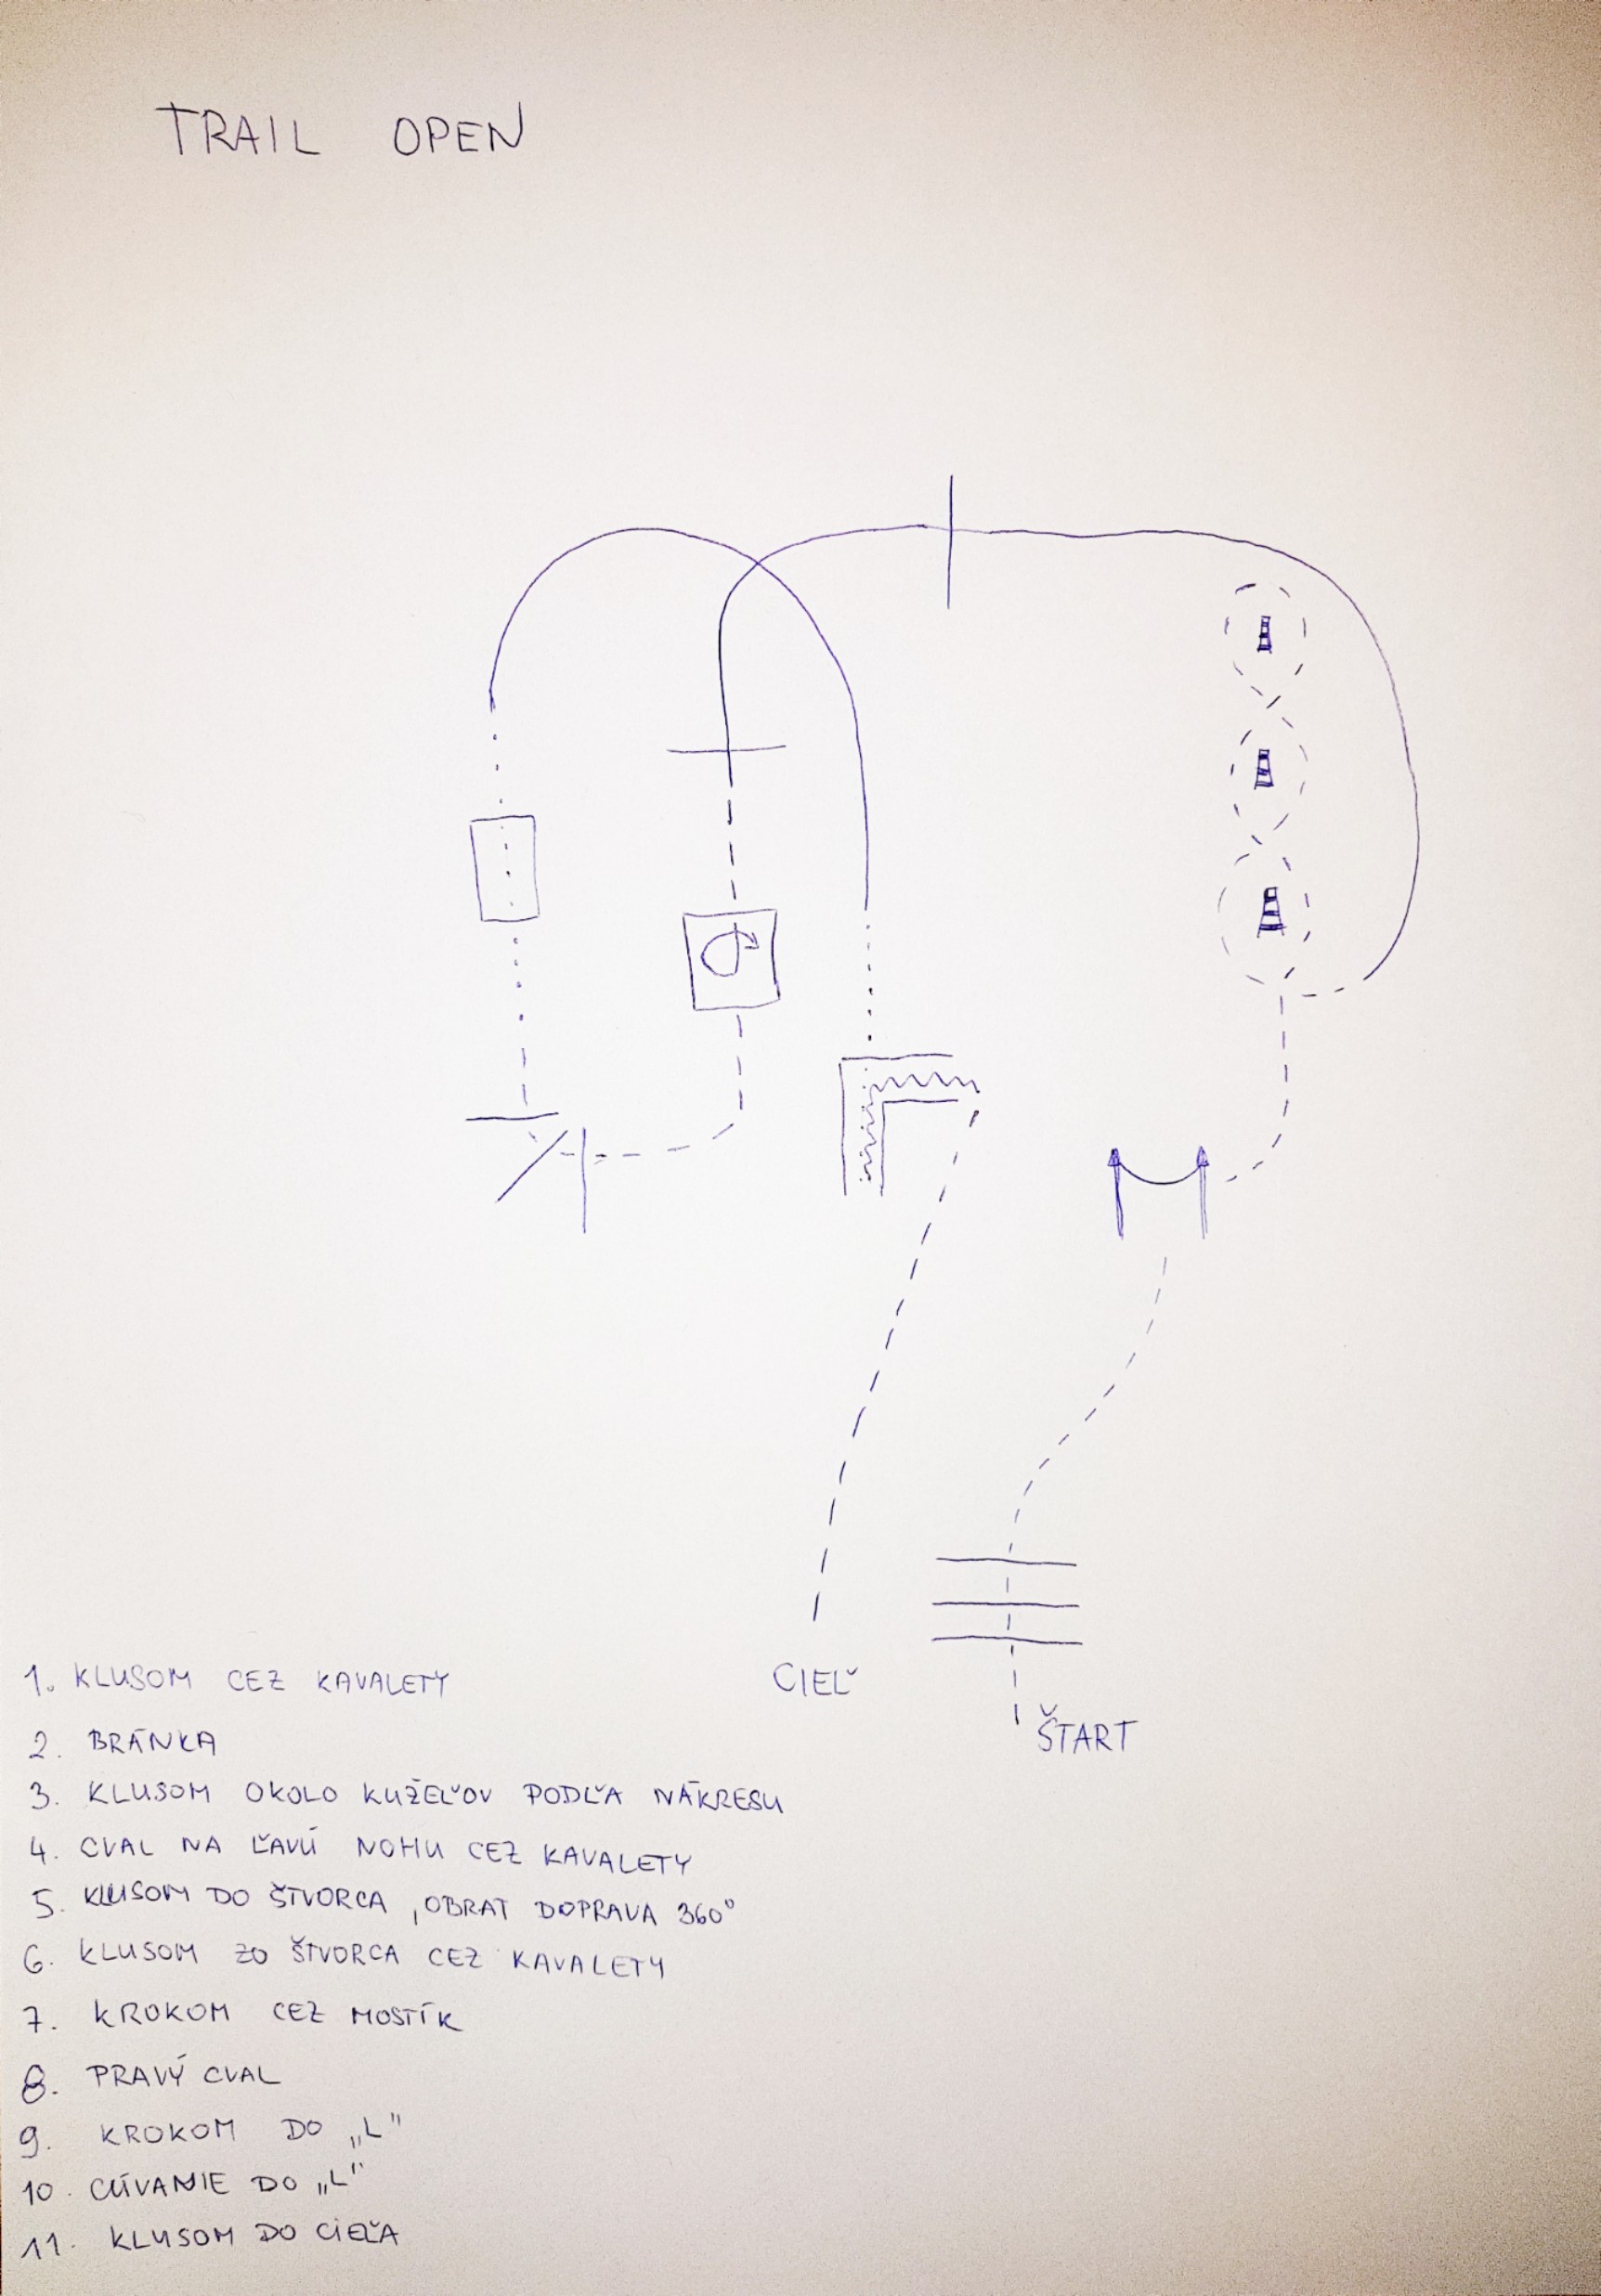 TRAIL OPEN
CIEĽ
ŠTART
1. KLUSOM CEZ KAVALETY
2. BRÁNKA
3. KLUSOM OKOLO KUŽEĽOV PODĽA NÁKRESU
4. CVAL NA ĽAVÚ NOHU CEZ KAVALETY
5. KLUSOM DO ŠTVORCA, OBRAT DOPRAVA 360°
6. KLUSOM ZO ŠTVORCA CEZ KAVALETY
7. KROKOM CEZ MOSTÍK
8. PRAVÝ CVAL
9. KROKOM DO „L"
10. CÚVANIE DO „L"
11. KLUSOM DO CIEĽA